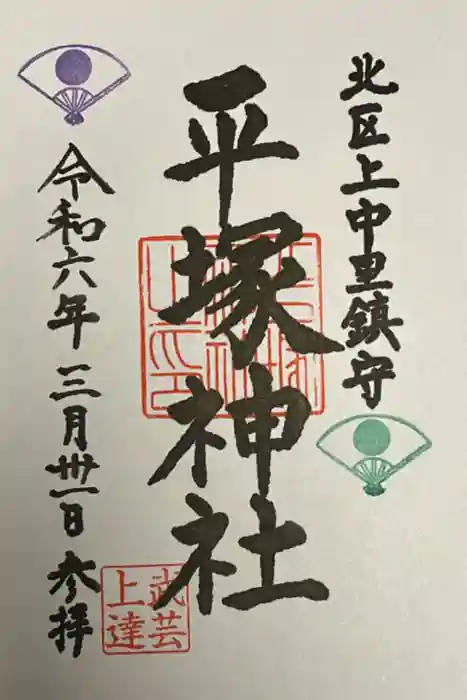 北区上中里鎮守
平塚神社
武芸
上達
令和六年三月卅一日参拝